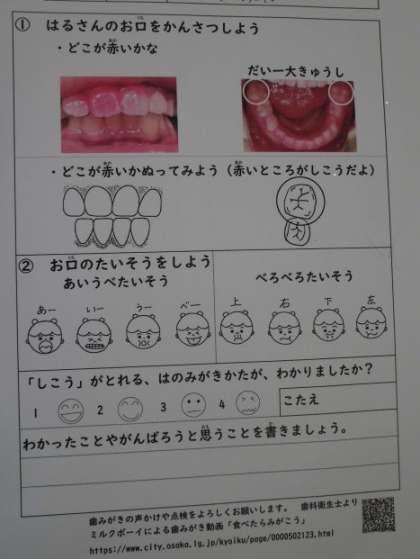 ① はるさんのお口をかんさつしよう
・どこが赤いかな
だい一大きゅうし
・どこが赤いかぬってみよう（赤いところがしこうだよ）
② お口のたいそうをしよう
あいうべたいそう
べろべろたいそう
あー いー うー べー
上 右 下 左
「しこう」がとれる、はのみがきかたが、わかりましたか？
1 2 3 4 こたえ
わかったことやがんばろうと思うことを書きましょう。
歯みがきの声かけや点検をよろしくお願いします。 歯科衛生士より
ミルクボーイによる歯みがき動画「食べたらみがこう」
https://www.city.osaka.lg.jp/kyoiku/page/0000502123.html